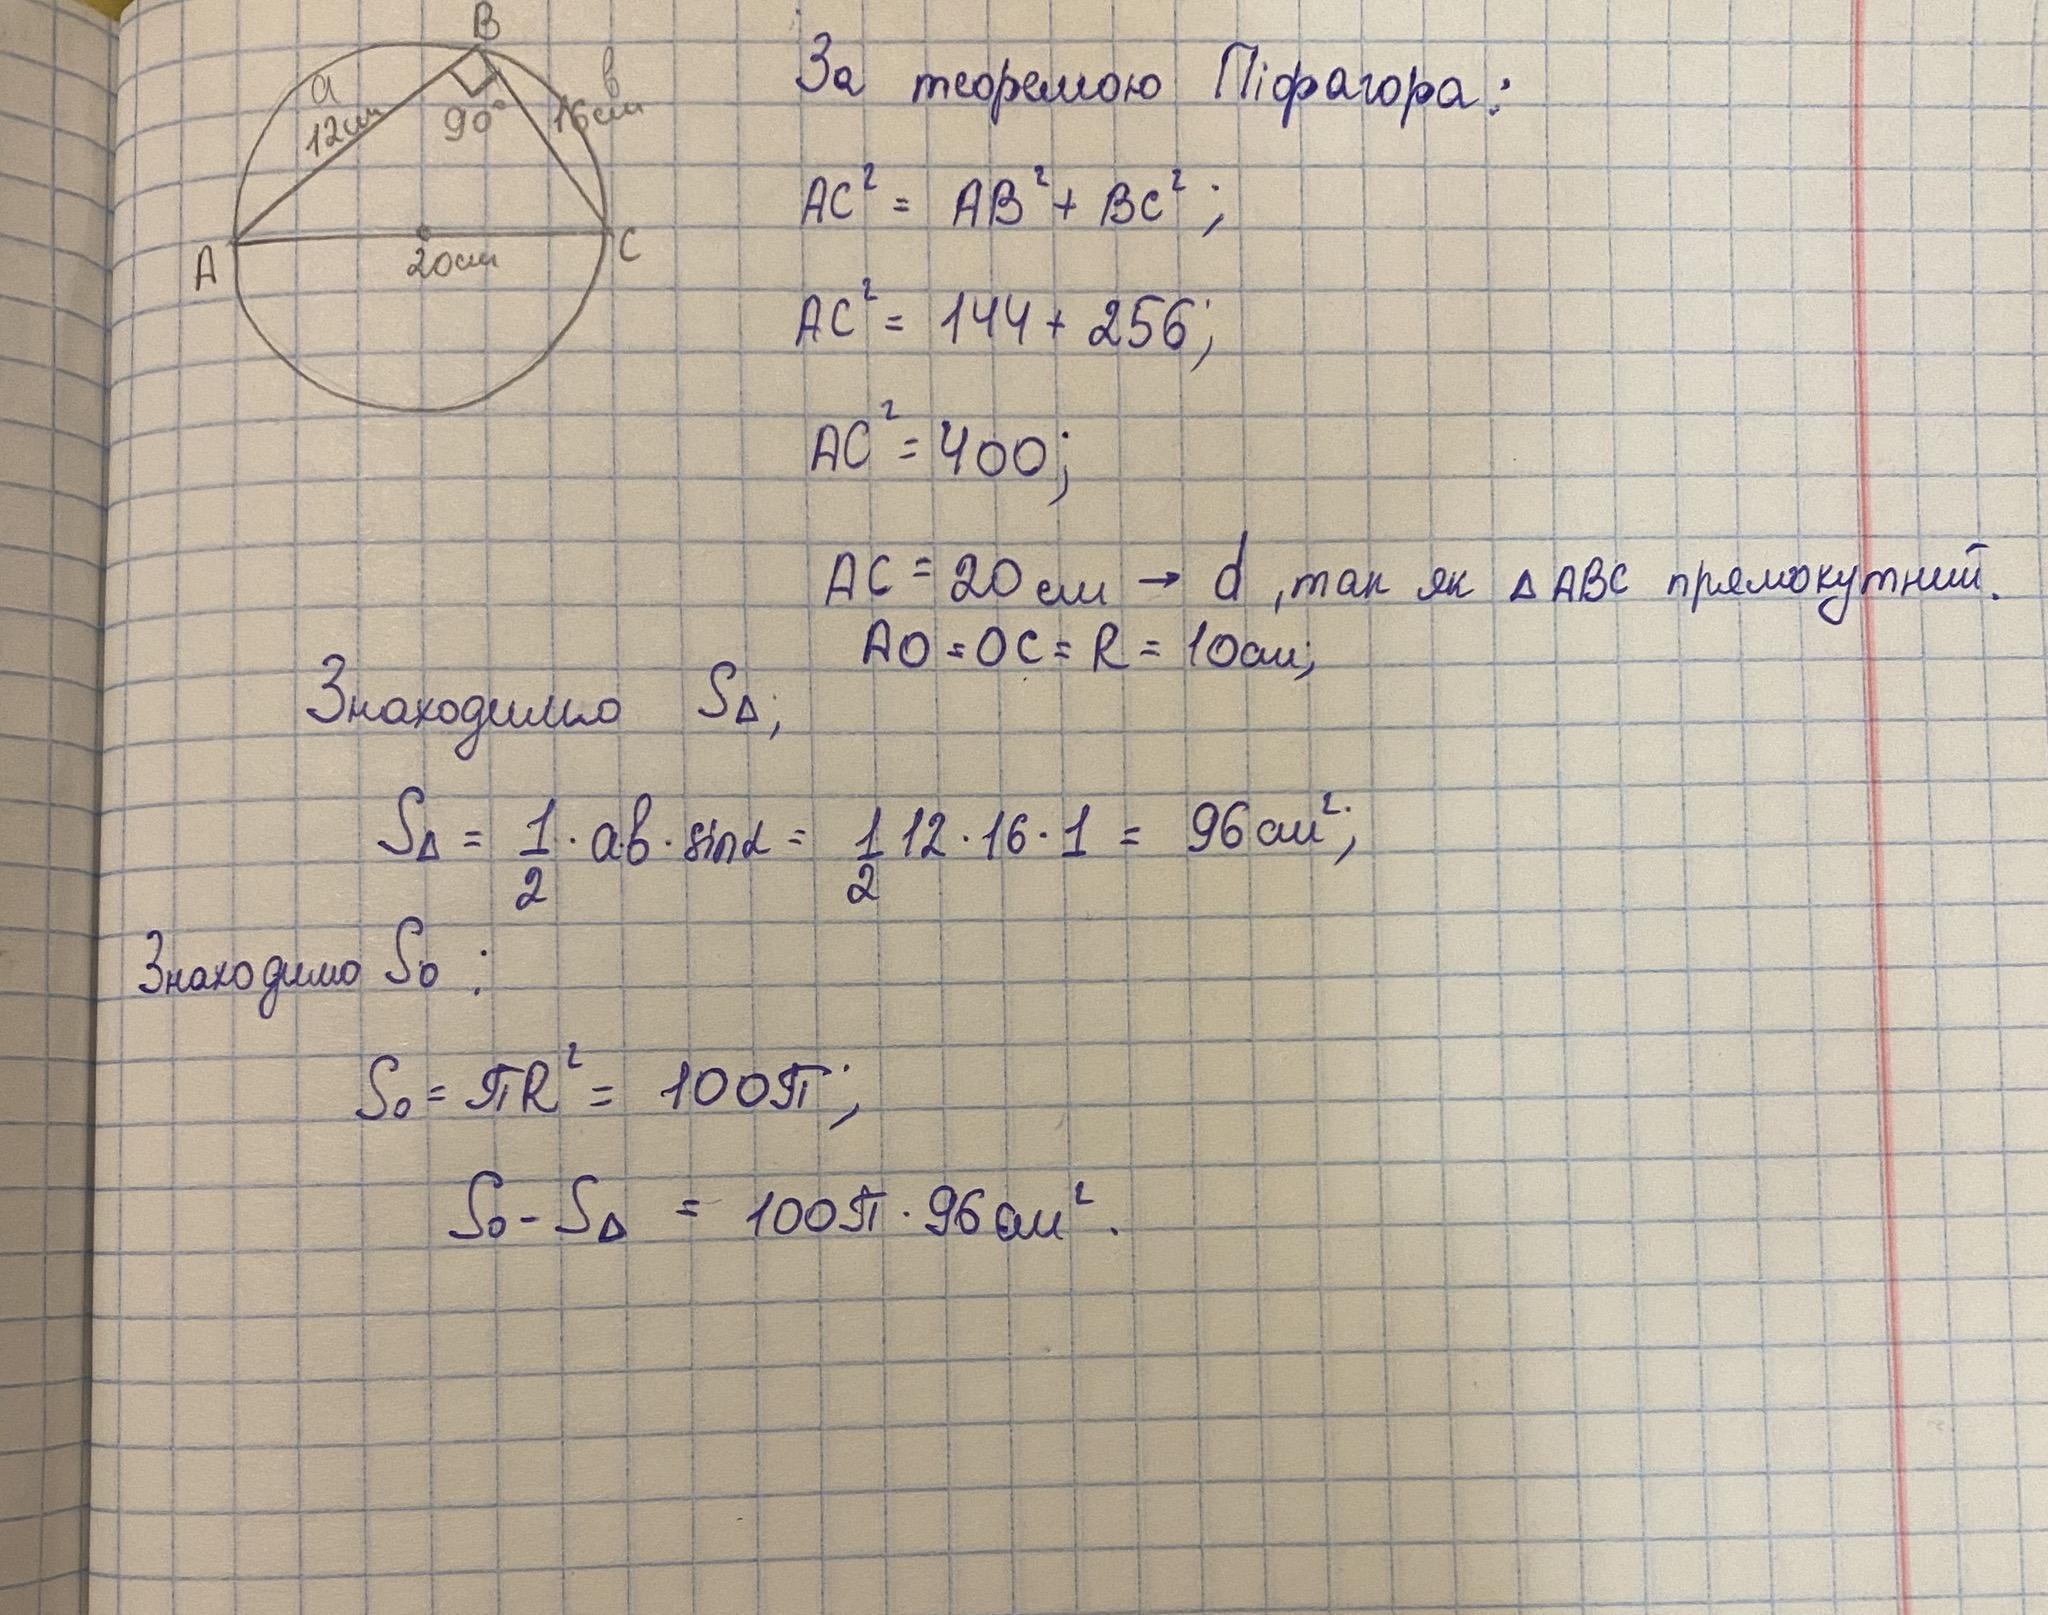 B
a
в
12см
90°
16см
A
20см
C
За теоремою Піфагора:
AC² = AB² + BC²;
AC² = 144 + 256;
AC² = 400;
AC = 20см → d, так як △ABC прямокутний.
AO = OC = R = 10см;
Знаходимо S△;
S△ = 1/2 · ab · sinα = 1/2 12 · 16 · 1 = 96см²;
Знаходимо S₀:
S₀ = πR² = 100π;
S₀ - S△ = 100π · 96см².